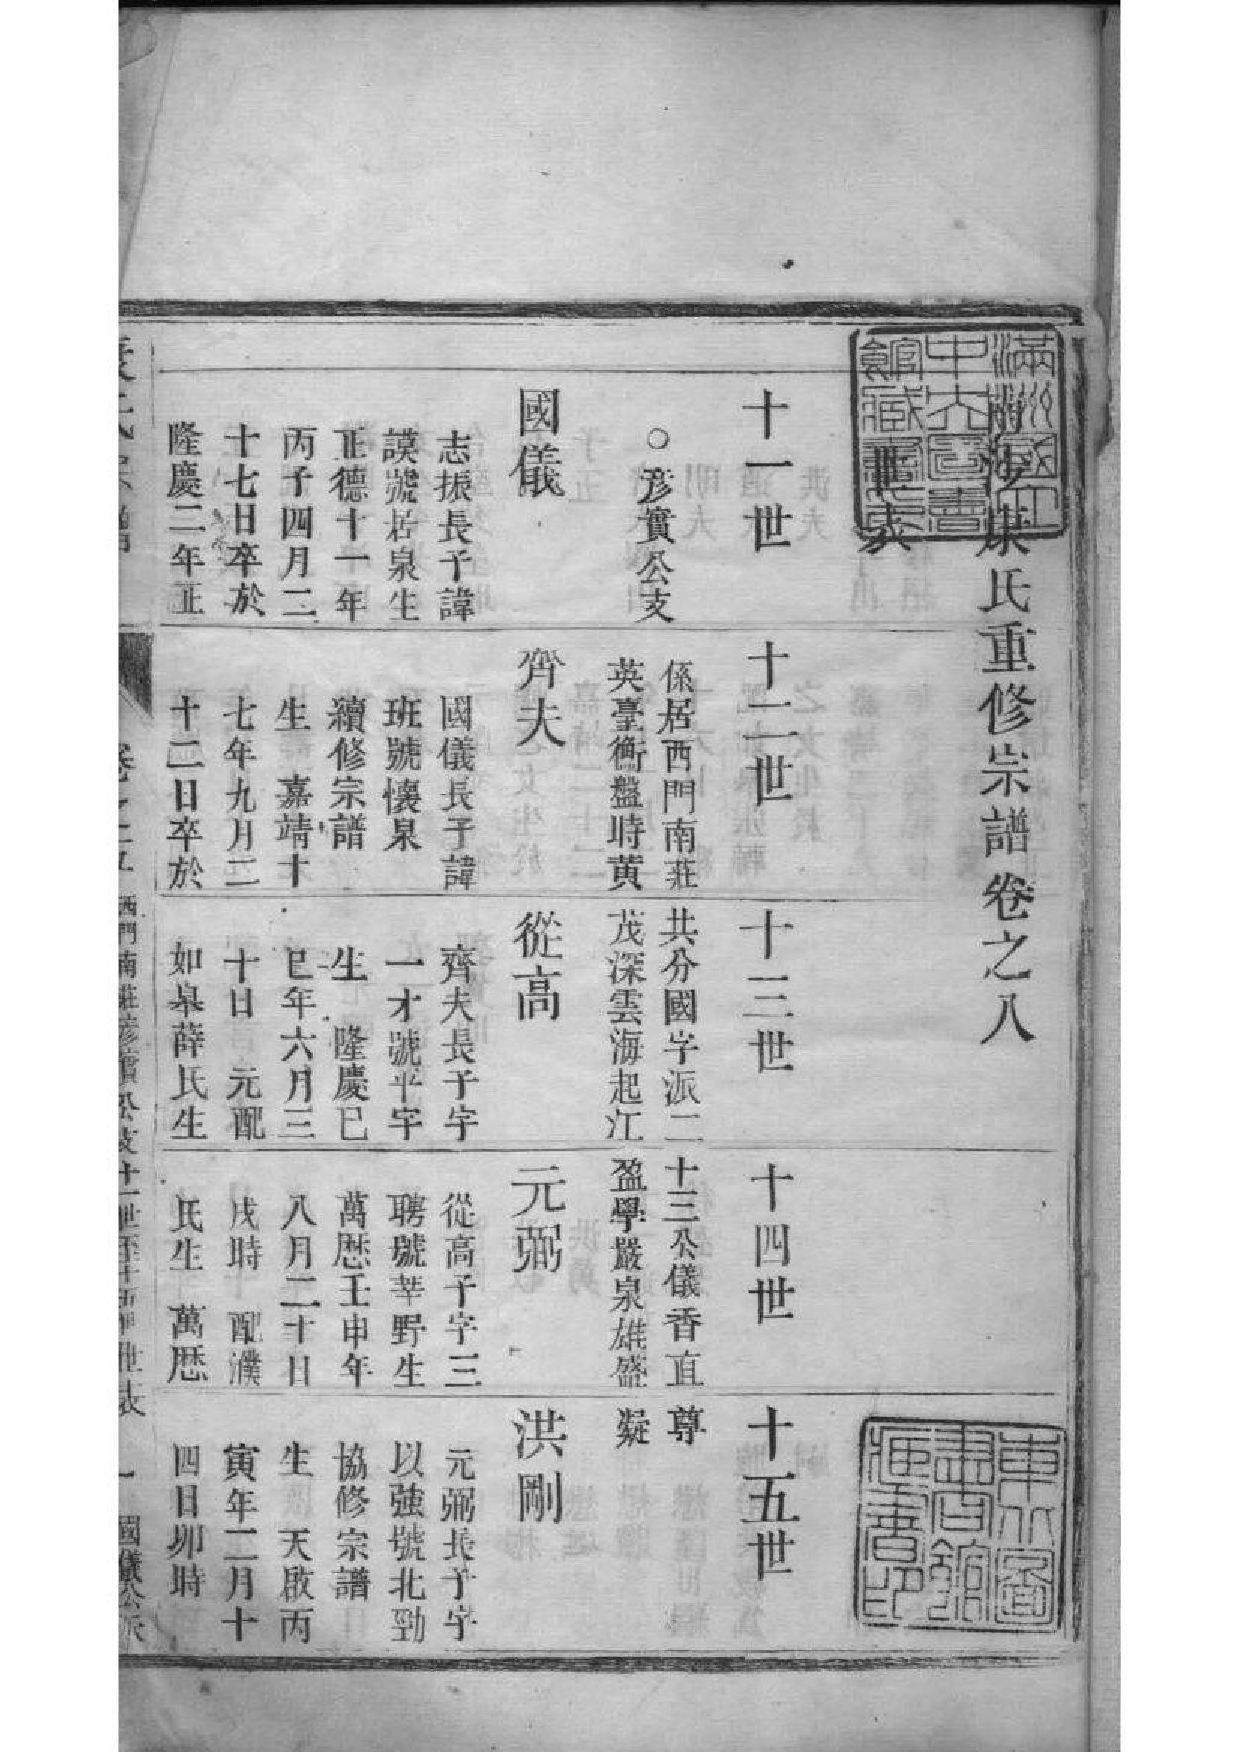 氏重修宗譜卷之八
世表
十一世
十二世
十三世
十四世
十五世
○彥實公支
係居西門南莊
英臺衡盤時黄
共分國字派二
茂深雲海起江
十三公儀香直
盈學嚴泉雄盛
尊
凝
國儀
志振長子諱
謨號居泉生
正德十一年
丙子四月二
十七日卒於
隆慶二年正
齊夫
國儀長子諱
班號懷泉
續修宗譜
生 嘉靖十
七年九月二
十二日卒於
從高
齊夫長子字
一才號平宇
生 隆慶己
巳年六月三
十日 元配
如皋薛氏生
元弼
從高子字三
聘號莘野生
萬歷壬申年
八月二十日
戌時 配濮
氏生 萬歷
洪剛
元弼長子字
以強號北勁
協修宗譜
生 天啟丙
寅年二月十
四日卯時
西門南莊彥實公支十一世至十五世世表
一
國儀公派
滿洲國立中央圖書館藏書
東北圖書館藏書印